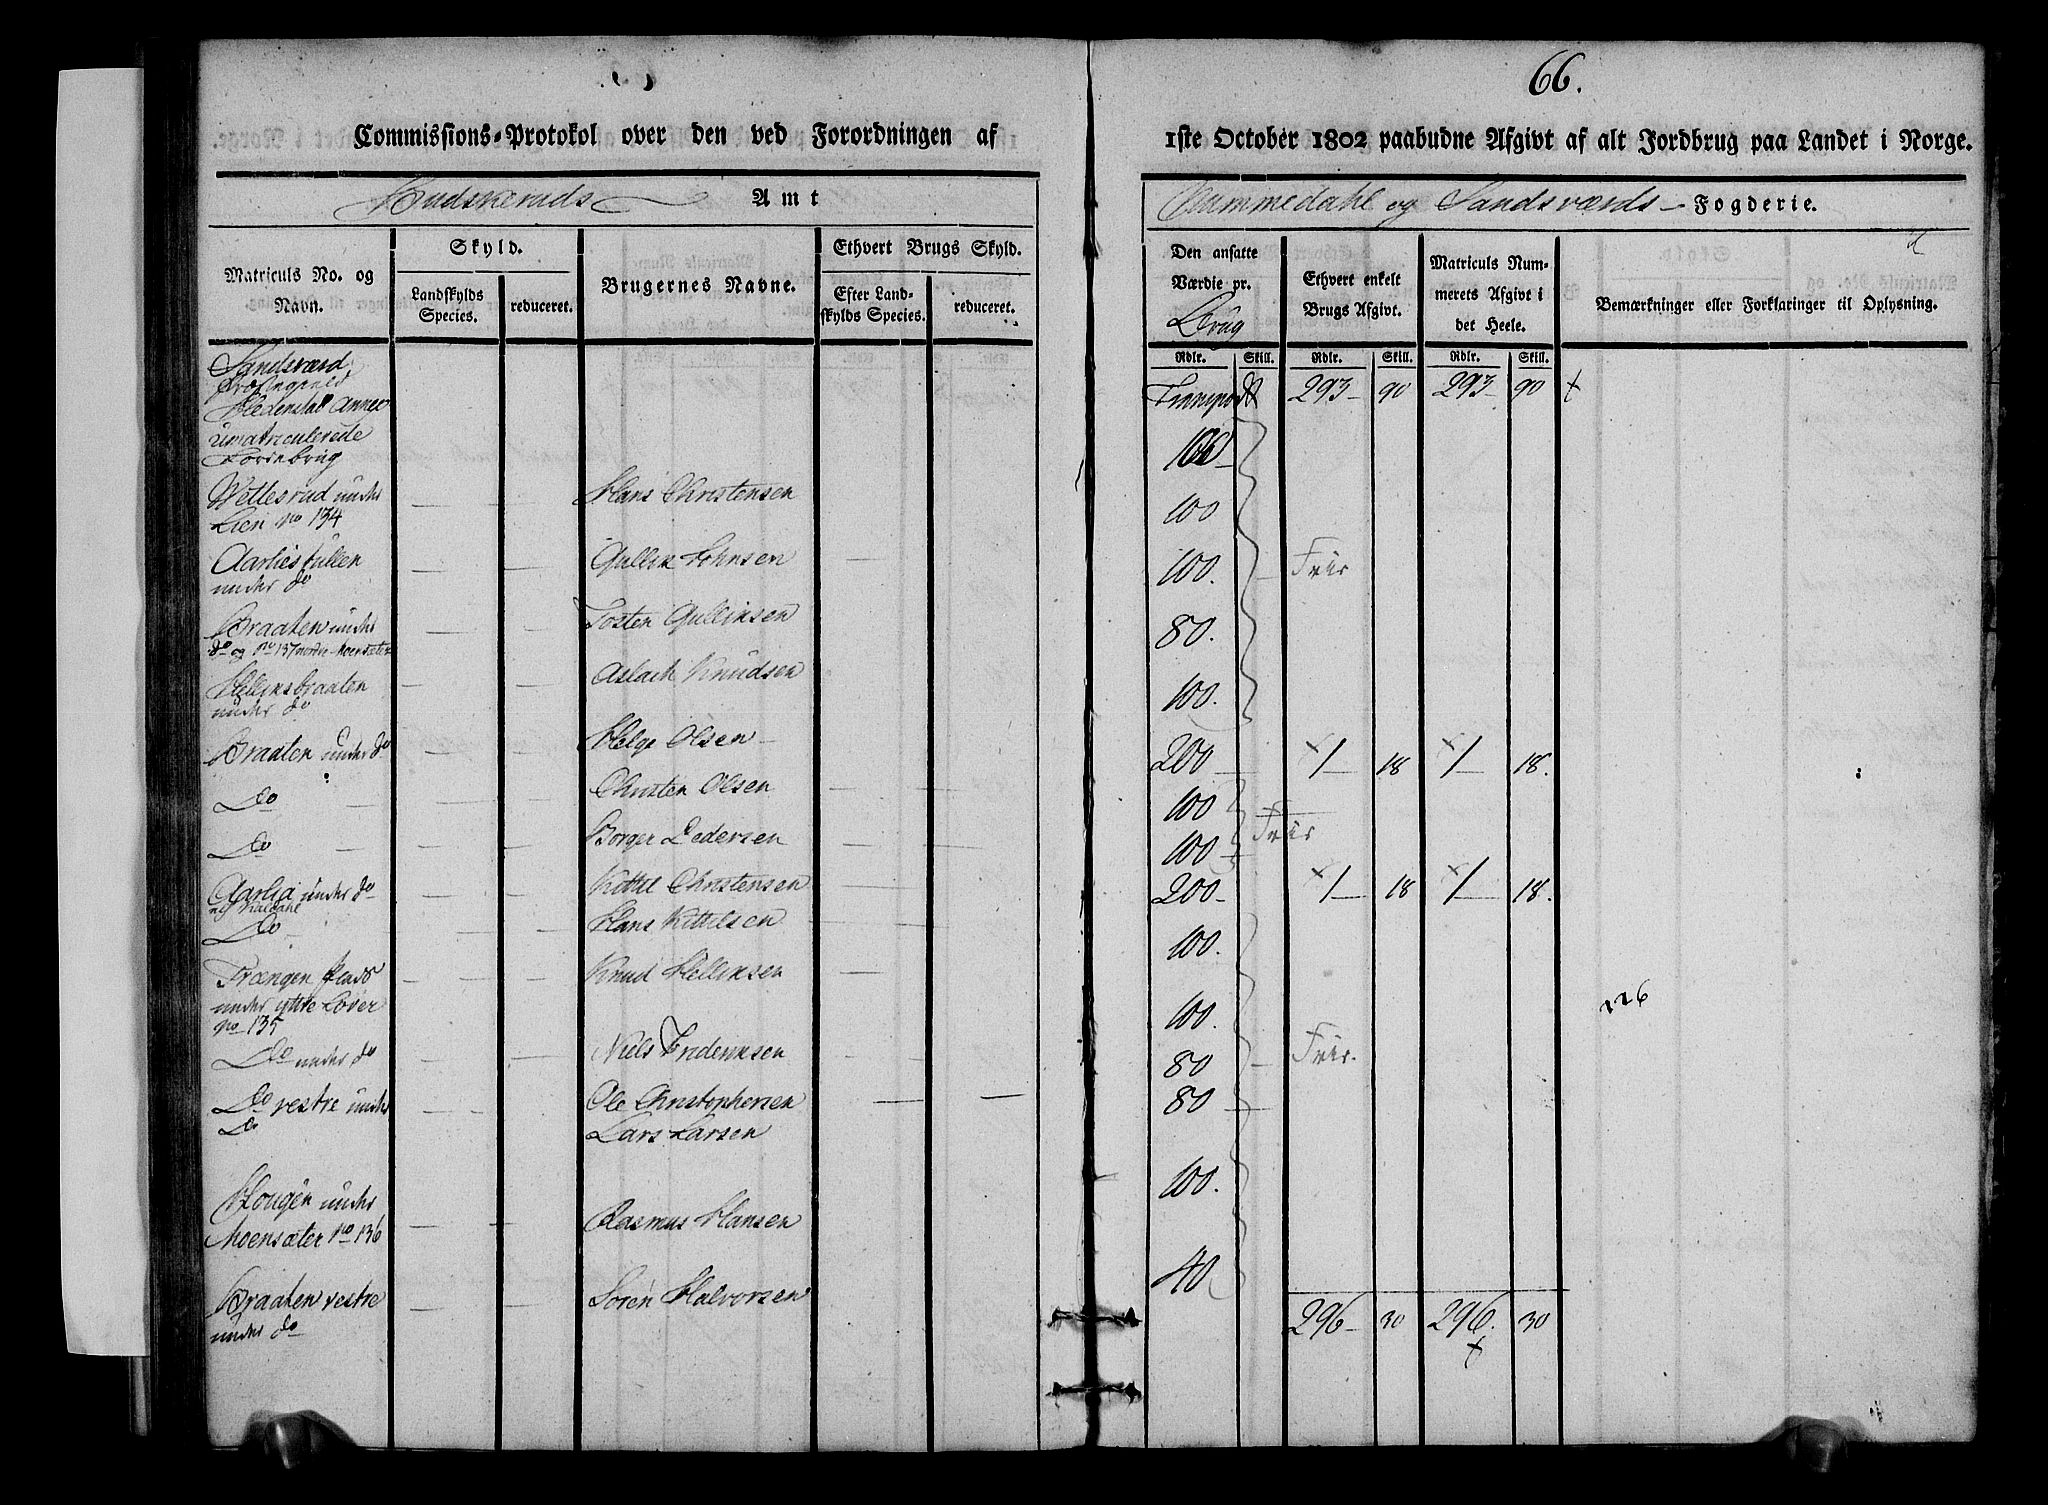 66.
Commissions-Protokol over den ved Forordningen af 1ste October 1802 paabudne Afgivt af alt Jordbrug paa Landet i Norge.
Budskeruds Amt
Nummedahl og Sandsværds Fogderie.
Matriculs No. og Navn.
Skyld.
Landskylds Species.
reduceret.
Brugernes Navne.
Ethvert Brugs Skyld.
Efter Landskylds Species.
reduceret.
Den ansatte Værdie pr. Brug
Ethvert enkelt Brugs Afgivt.
Matriculs Nummerets Afgivt i det Heele.
Bemærkninger eller Forklaringer til Oplysning.
Rdlr. Skill. Rdlr. Skill. Rdlr. Skill.
Sandsværd
Præstegield
Hedenstad Annex
Transport 293 90 293 90
umatriculerede
Jordebrug
100
Wettesrud under Hans Christensen 100
Lien no 134
Aarliestullen Gullik Johnsen 100. Frir
under do
Braaten under Tosten Gulliksen 80.
do og no 137 nordre Moensæter
Helliksbraaten Aslach Knudsen 100.
under do
Braaten under do Helge Olsen 200 1 18 1 18.
Do Christen Olsen 100
Frir
Do Borger Pedersen 100
Aarlia under do Kittil Christensen 200 1 18 1 18.
Do Hans Kittilsen 100.
Trangen Plads Knud Helliksen 100.
under ytre Lover
no 135
226
Do under do Niels Friderichsen 80 Frir.
Do vestre under Ole Christophersen 80
Do Lars Larsen
Hougen under Rasmus Hansen 100.
Moensæter no 136
Braaten vestre Soren Halvorsen 40
under do
296 30 296. 30